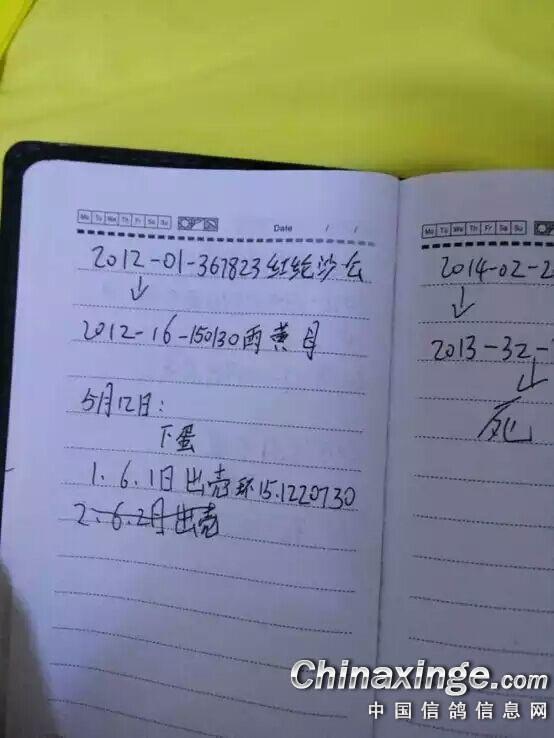 Mo Tu We Th Fr Sa Su
Date / /
2012-01-367823红轮沙公
↓
2012-16-150130雨黄母
5月12日:
下蛋
1.6.1日出壳环15.1220730
2.6.2日出壳
Mo Tu We Th Fr Sa Su
2014-02-2
↓
2013-32-
↓
死
Chinaxinge.com
中国信鸽信息网